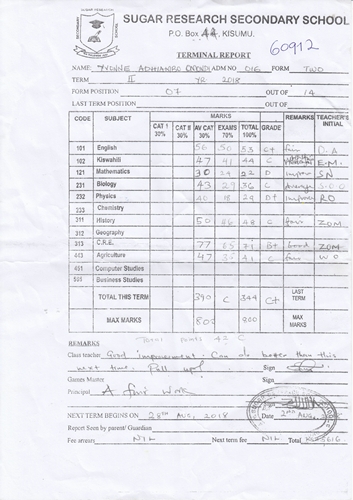 SUGAR RESEARCH SECONDARY SCHOOL
P.O. Box 44, KISUMU.
TERMINAL REPORT
60912
NAME YVONNE ADHIAMBO ADM NO 016 FORM TWO
TERM II YR 2018
FORM POSITION 07 OUT OF 14
LAST TERM POSITION OUT OF
CODE SUBJECT MARKS REMARKS TEACHER'S INITIAL
CAT 1 30% CAT II 30% AV CAT 30% EXAMS 70% TOTAL 100% GRADE
101 English 56 50 53 C+ fair D.A
102 Kiswahili 47 41 44 C E.M.
121 Mathematics 30 24 22 D SN
231 Biology 43 29 36 C Average
232 Physics 40 18 29 D+ RO
233 Chemistry
311 History 50 46 48 C fair ZOM
312 Geography
313 C.R.E. 77 65 71 B+ Good ZOM
443 Agriculture 47 35 41 C fair WO
451 Computer Studies
Business Studies
TOTAL THIS TERM 390 C 344 C+ LAST TERM
MAX MARKS 800 MAX MARKS
Total points 42 C
REMARKS
Class teacher Good improvement. Can do better than this
next time. Pull up! Sign
Games Master Sign
Principal A fair work
NEXT TERM BEGINS ON 28th AUG, 2018 Date 2ND AUG,
Report Seen by parent/ Guardian
Fee arrears NIL Next term fee NIL Total